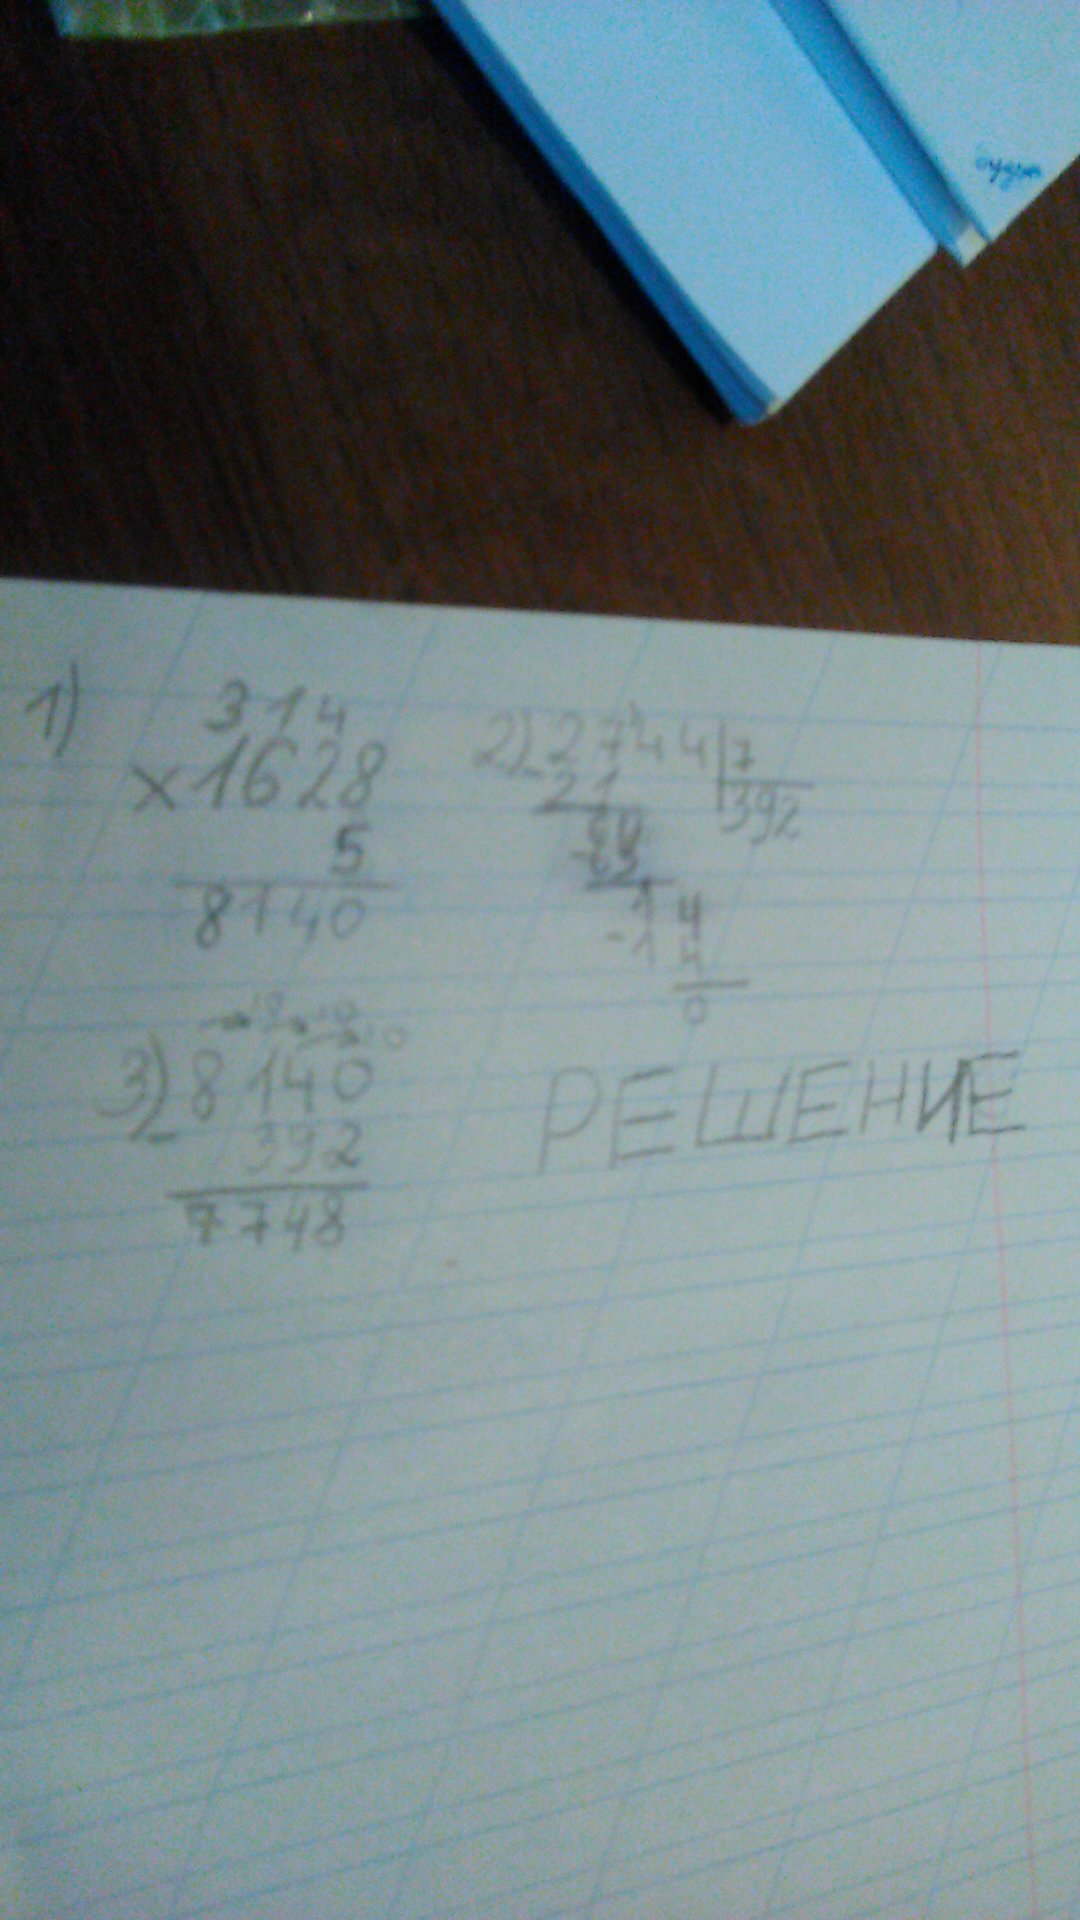 1) 314
×1628
5
8140
2) 2744 7
- 21 392
64
- 63
14
- 14
0
3) 8140
- 392
7748
РЕШЕНИЕ